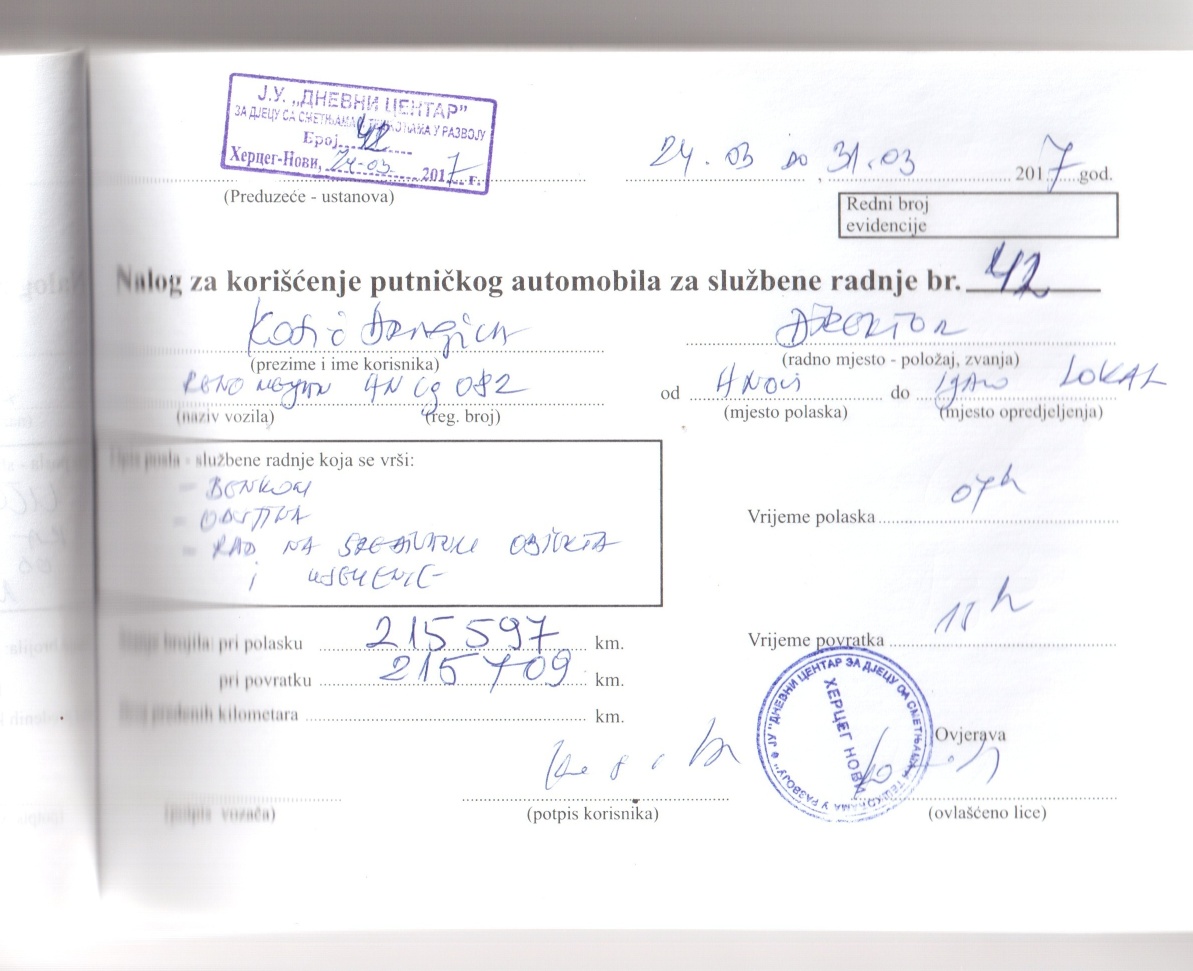 Ј.У. „ДНЕВНИ ЦЕНТАР”
ЗА ДЈЕЦУ СА СМЕТЊАМА И ТЕШКОЋАМА У РАЗВОЈУ
Број 42
Херцег-Нови, 24-03 2017 г.
24.03 do 31.03, 2017 god.
(Preduzeće - ustanova)
Redni broj
evidencije
Nalog za korišćenje putničkog automobila za službene radnje br. 42
DIREKTOR
(prezime i ime korisnika)
(radno mjesto - položaj, zvanja)
HN CG 082
od H Novi do Igalo LOKAL
(naziv vozila) (reg. broj)
(mjesto polaska) (mjesto opredjeljenja)
Opis posla - službene radnje koja se vrši:
- OPŠTINA
- RAD NA OBJEKTA
i
Vrijeme polaska 07h
Stanje brojila: pri polasku 215597 km.
Vrijeme povratka h
pri povratku 215709 km.
Broj pređenih kilometara km.
ЈУ "ДНЕВНИ ЦЕНТАР ЗА ДЈЕЦУ СА СМЕТЊАМА И ТЕШКОЋАМА У РАЗВОЈУ"
ХЕРЦЕГ НОВИ
Ovjerava
(potpis vozača)
(potpis korisnika)
(ovlašćeno lice)